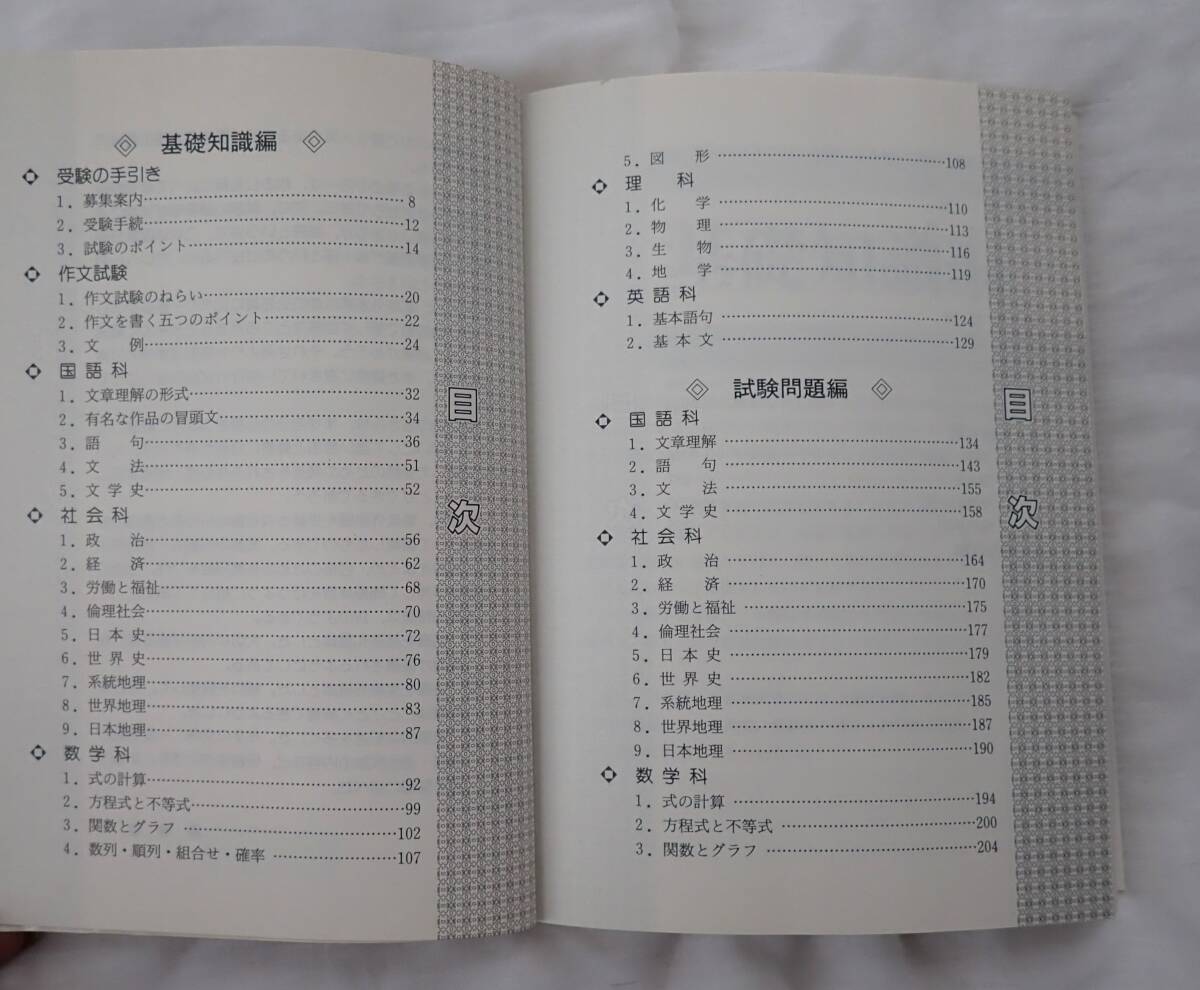 基礎知識編
受験の手引き
1．募集案内……8
2．受験手続……12
3．試験のポイント……14
作文試験
1．作文試験のねらい……20
2．作文を書く五つのポイント……22
3．文　例……24
国語科
1．文章理解の形式……32
2．有名な作品の冒頭文……34
3．語　句……36
4．文　法……51
5．文学史……52
社会科
1．政　治……56
2．経　済……62
3．労働と福祉……68
4．倫理社会……70
5．日本史……72
6．世界史……76
7．系統地理……80
8．世界地理……83
9．日本地理……87
数学科
1．式の計算……92
2．方程式と不等式……99
3．関数とグラフ……102
4．数列・順列・組合せ・確率……107
目次
5．図　形……108
理　科
1．化　学……110
2．物　理……113
3．生　物……116
4．地　学……119
英語科
1．基本語句……124
2．基本文……129
試験問題編
国語科
1．文章理解……134
2．語　句……143
3．文　法……155
4．文学史……158
社会科
1．政　治……164
2．経　済……170
3．労働と福祉……175
4．倫理社会……177
5．日本史……179
6．世界史……182
7．系統地理……185
8．世界地理……187
9．日本地理……190
数学科
1．式の計算……194
2．方程式と不等式……200
3．関数とグラフ……204
目次